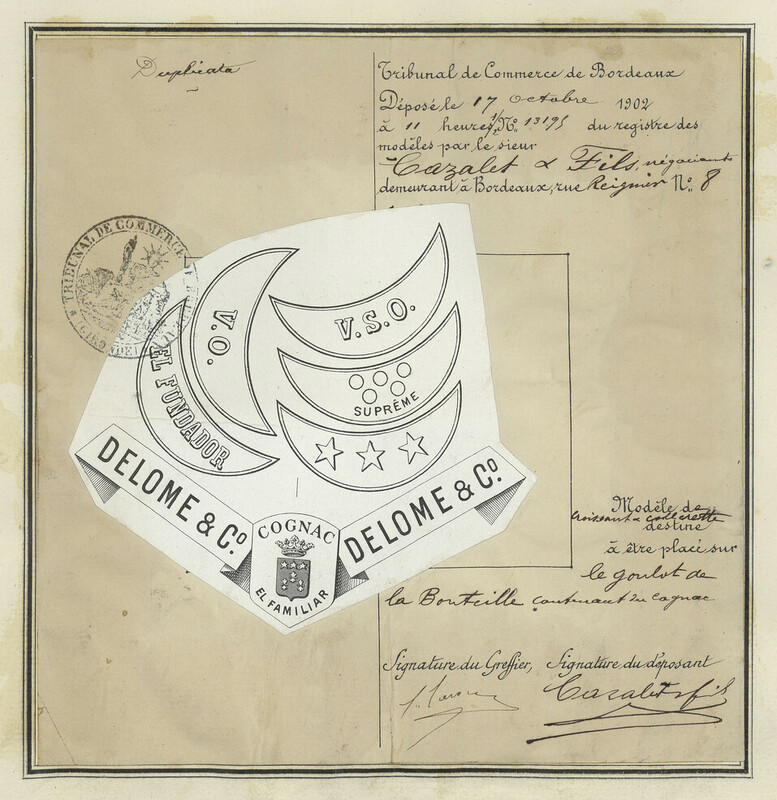 Duplicata
Tribunal de Commerce de Bordeaux
Déposé le 17 octobre 1902
à 11 heures, No. 13195 du registre des
modèles par le sieur
Cazalet & Fils, négociants
demeurant à Bordeaux, rue Reignier No. 8
TRIBUNAL DE COMMERCE
(GIRONDE)
V.O.
EL FUNDADOR
V.S.O.
SUPRÊME
DELOME & Co.
DELOME & Co.
COGNAC
EL FAMILIAR
Modèle de
croissant & collerette
destiné
à être placé sur
le goulot de
la Bouteille contenant du Cognac
Signature du Greffier, Signature du déposant
Cazalet & fils